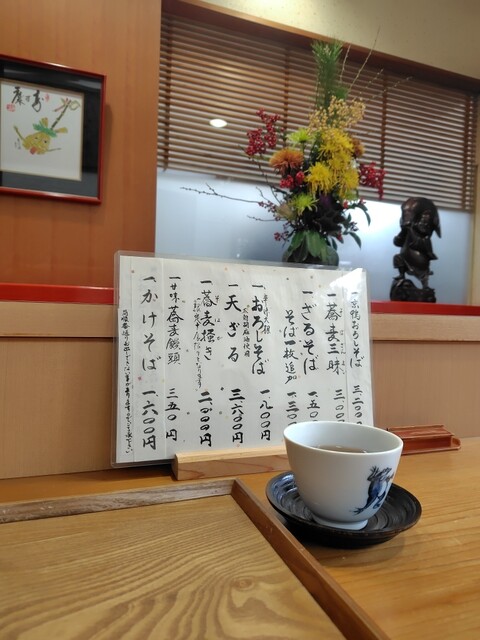 寿
一 京鴨おろしそば 三、二〇〇
一 蕎麦三昧 三、〇〇
一 ざるそば 一、五〇
そば一枚追加 一、三〇
辛味大根
一 おろしそば 一、八〇〇
太白胡麻油使用
一 天ざる 三、六〇〇円
一 蕎麦掻き 二、〇〇〇円
一 甘味 蕎麦饅頭 三五〇円
一 かけそば 一、六〇〇円